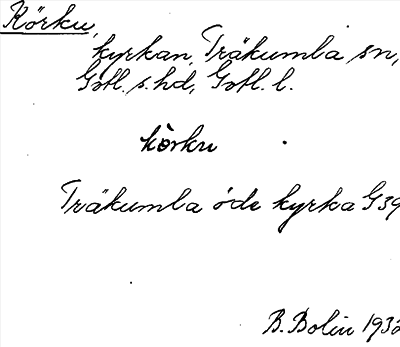 Körku,
kyrkan, Träkumla sn,
Gotl. s. hd, Gotl. l.
kòrku
Träkumla öde kyrka G 39
B. Bolin 1932